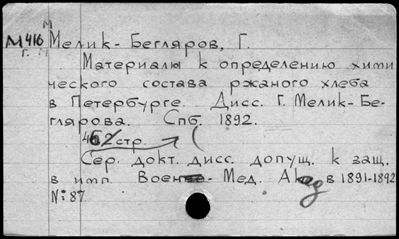 М
М416 Мелик-Бегляров, Г.
г.
Материалы к определению хими
ческого состава ржаного хлеба
в Петербурге. Дисс. Г. Мелик-Бе-
глярова. Спб. 1892.
стр.
Сер. докт. дисс. допущ. к защ.
в имп. Воен - Мед. Акад в 1891-1892
№: 87